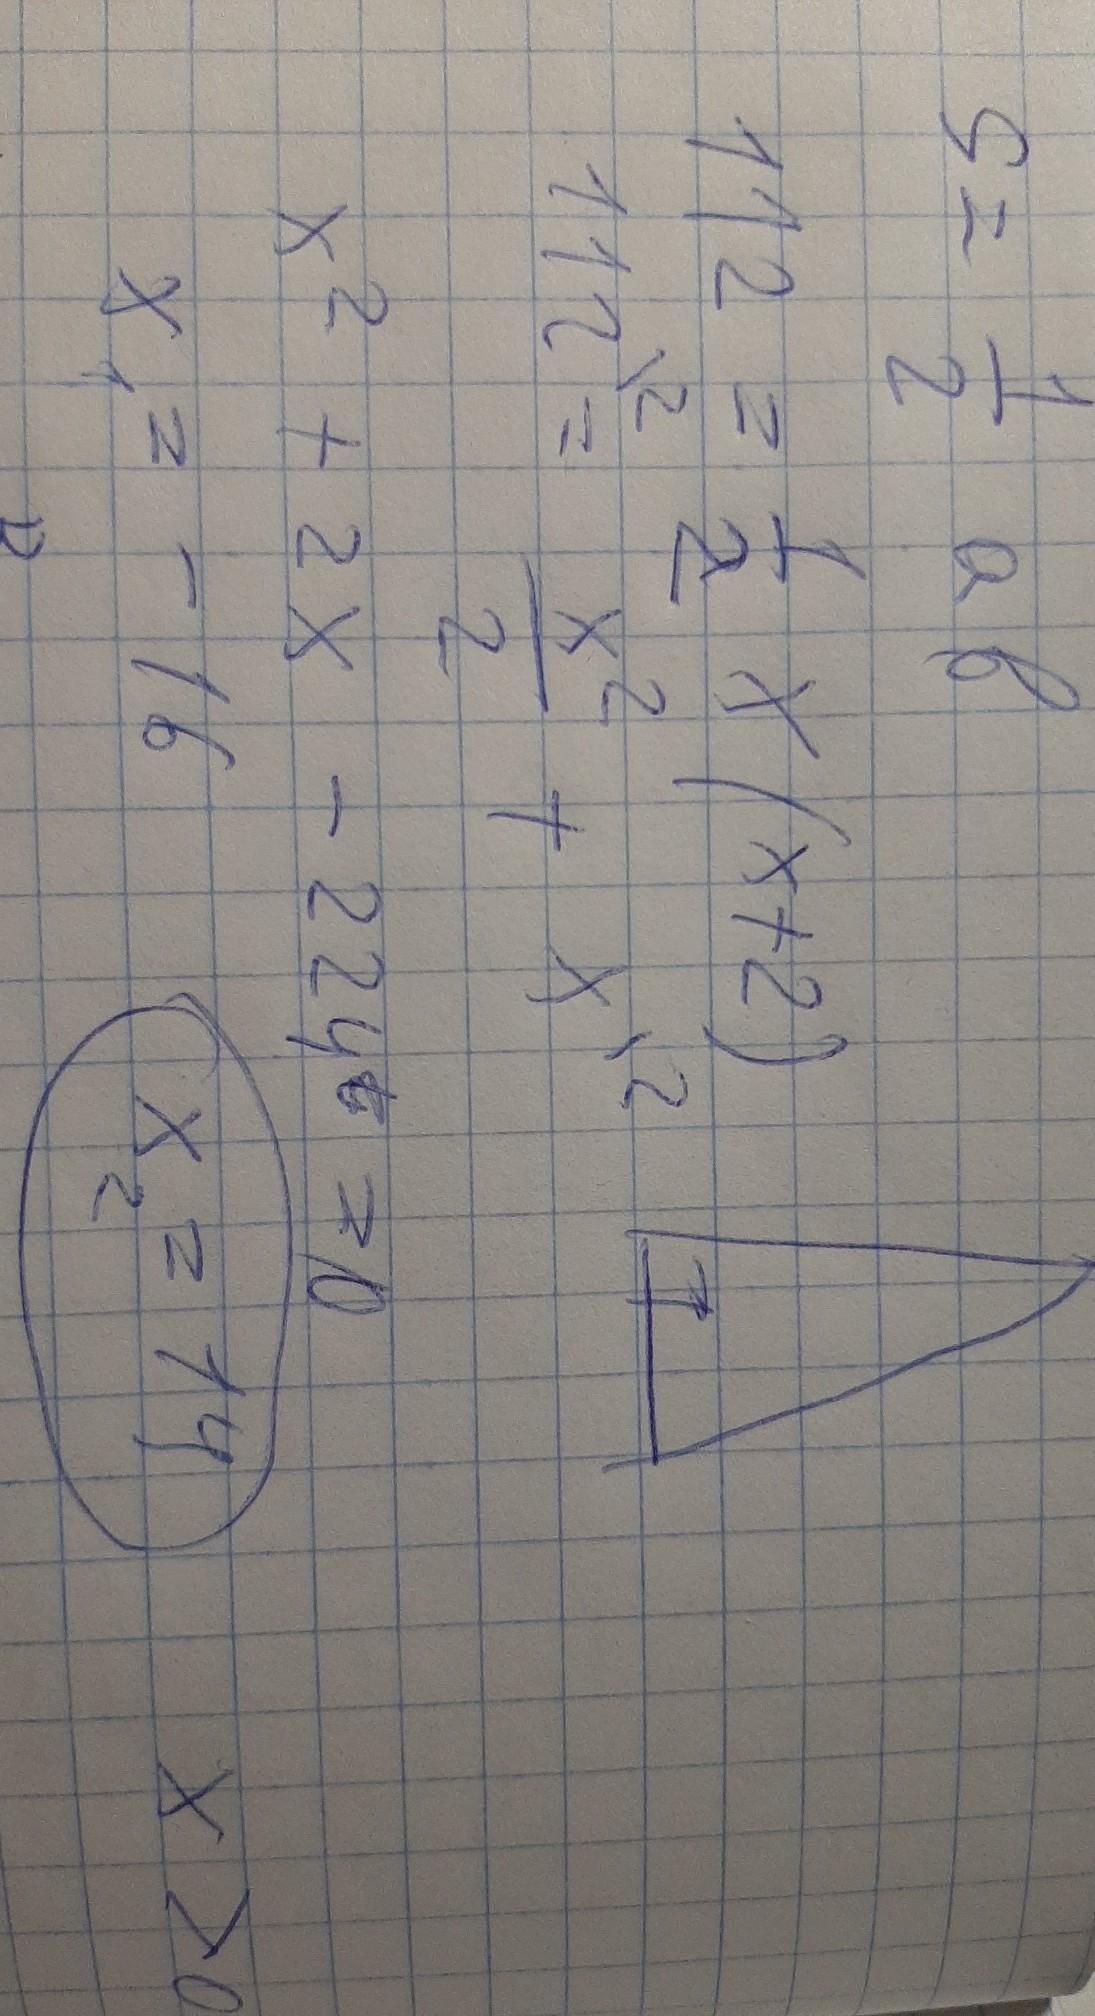 S = 1/2 ab
112 = 1/2 x (x+2)
112\2 = x²/2 + x\2
x² + 2x - 224 = 0
x₁ = -16 x₂ = 14 x > 0